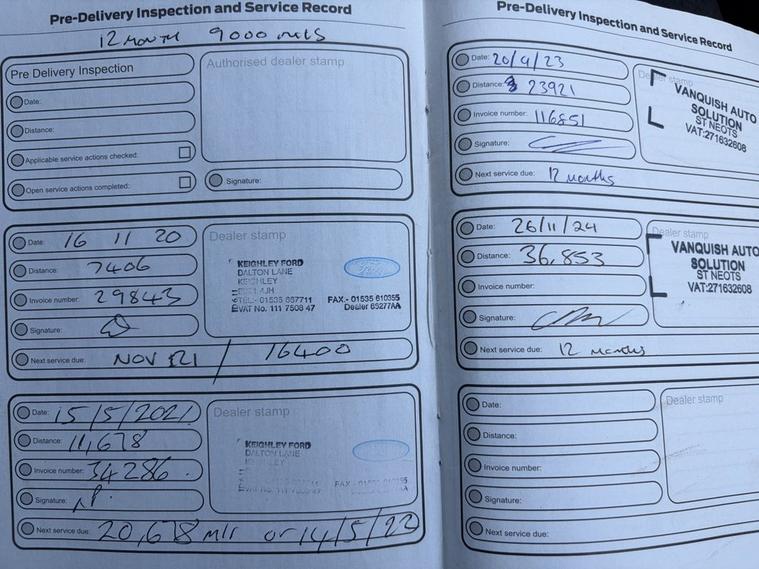 Pre-Delivery Inspection and Service Record
12 MONTH 9000 MILES
Pre Delivery Inspection
Date:
Distance:
Applicable service actions checked:
Open service actions completed:
Authorised dealer stamp
Signature:
Date: 16 11 20
Distance: 7406
Invoice number: 29843
Signature:
Next service due: NOV 21 / 16400
Dealer stamp
KEIGHLEY FORD
DALTON LANE
KEIGHLEY
TEL:- 01535 667711 FAX.- 01535 610355
VAT No. 111 7508 47 Dealer 65277AA
Date: 15/5/2021
Distance: 11,678
Invoice number: 34286
Signature:
Next service due: 20,678 mls or 14/5/22
Dealer stamp
KEIGHLEY FORD
DALTON LANE
Pre-Delivery Inspection and Service Record
Date: 20/9/23
Distance: 23921
Invoice number: 116851
Signature:
Next service due: 12 months
Dealer stamp
VANQUISH AUTO
SOLUTION
ST NEOTS
VAT:271632608
Date: 26/11/24
Distance: 36,853
Invoice number:
Signature:
Next service due: 12 months
Dealer stamp
VANQUISH AUTO
SOLUTION
ST NEOTS
VAT:271632608
Date:
Distance:
Invoice number:
Signature:
Next service due:
Dealer stamp